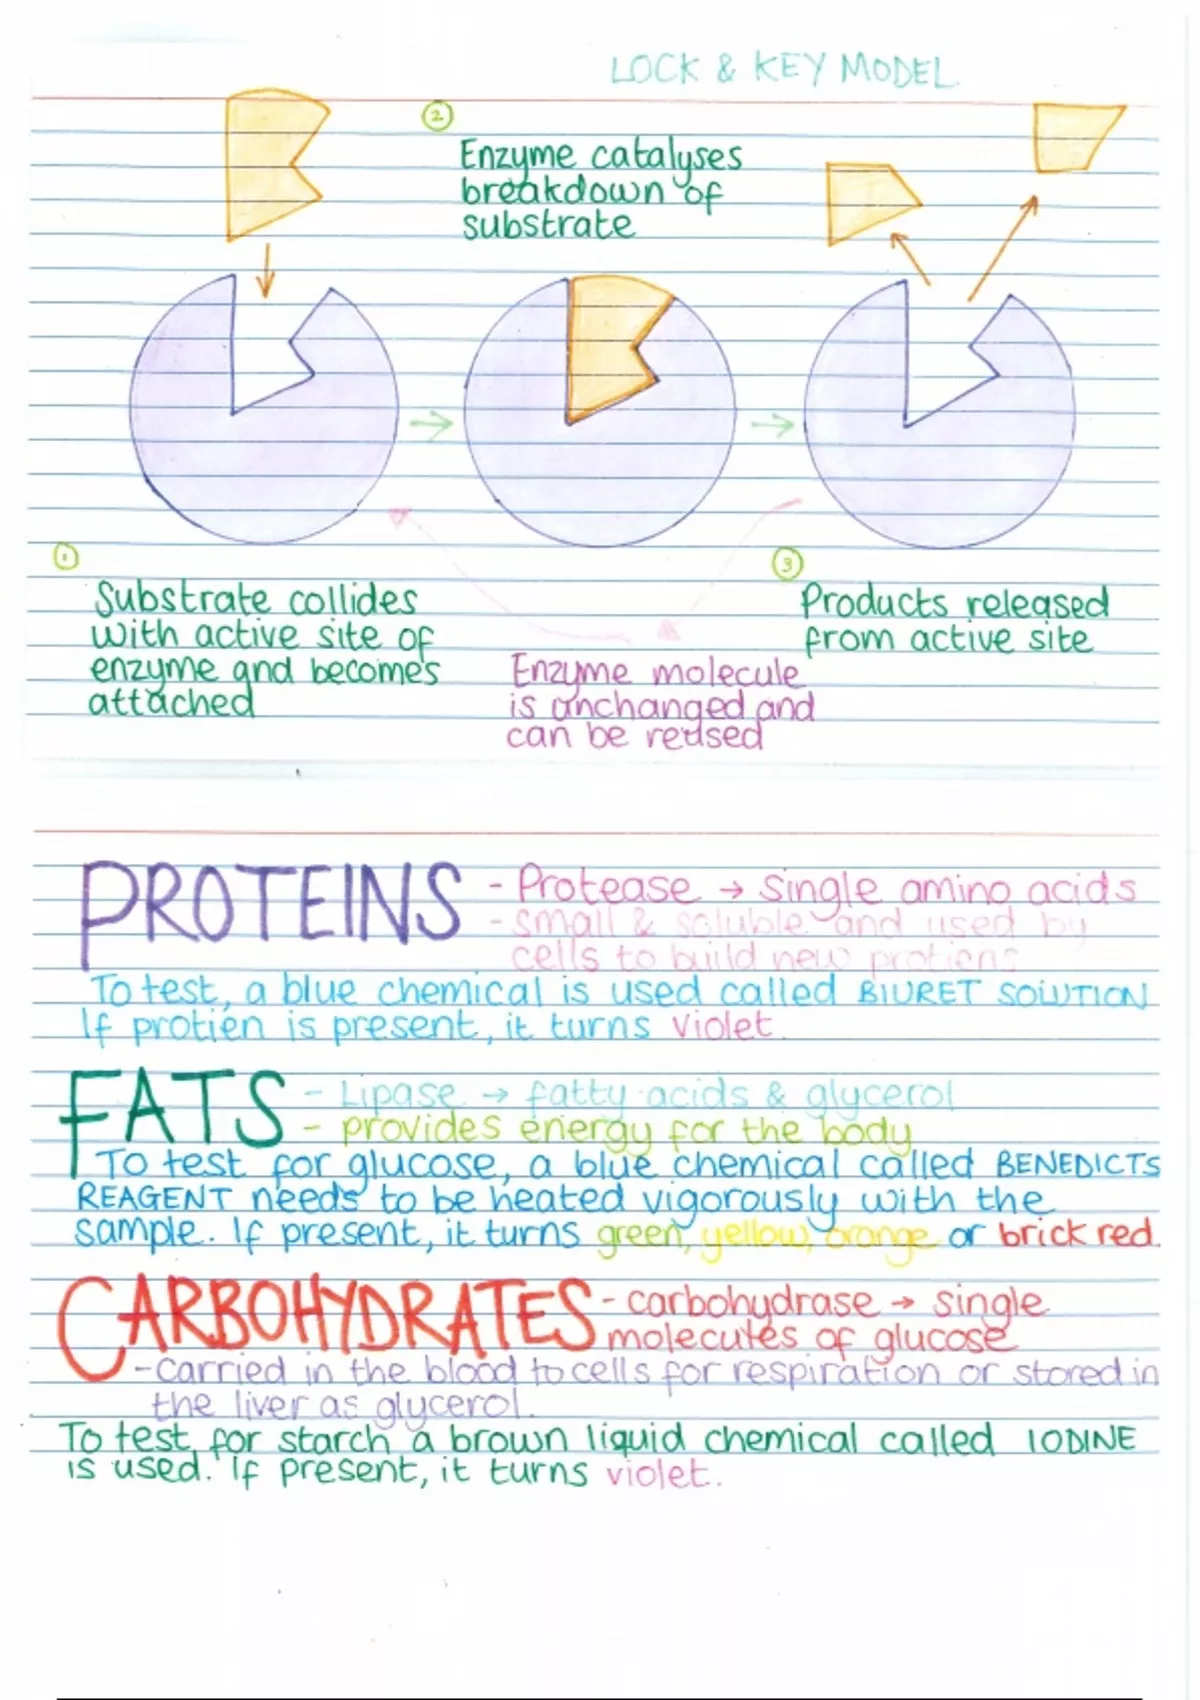 LOCK & KEY MODEL
②
Enzyme catalyses
breakdown of
substrate
①
Substrate collides
with active site of
enzyme and becomes
attached
③
Products released
from active site
Enzyme molecule
is unchanged and
can be reused
PROTEINS - Protease → Single amino acids
- small & soluble and used by
cells to build new protiens
To test, a blue chemical is used called BIURET SOLUTION
If protien is present, it turns violet.
FATS - Lipase → fatty acids & glycerol
- provides energy for the body
To test for glucose, a blue chemical called BENEDICTS
REAGENT needs to be heated vigorously with the
sample. If present, it turns green, yellow, orange or brick red.
CARBOHYDRATES - carbohydrase → single
molecules of glucose
- Carried in the blood to cells for respiration or stored in
the liver as glycerol.
To test for starch a brown liquid chemical called IODINE
is used. If present, it turns violet.